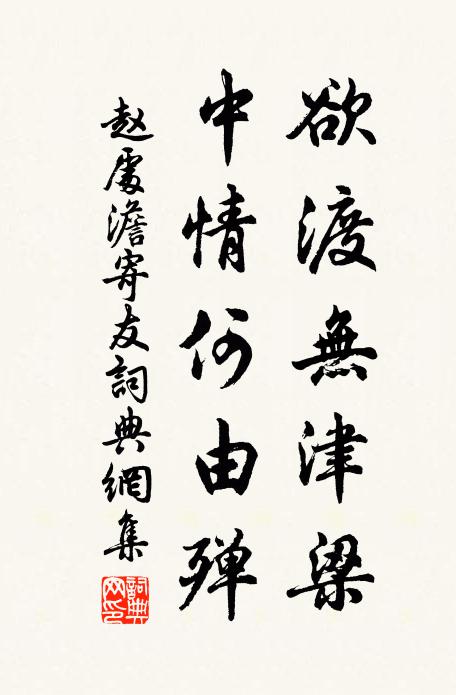 欲渡無津梁
中情何由殫
赵處澹寄友詞典網集
詞典網印